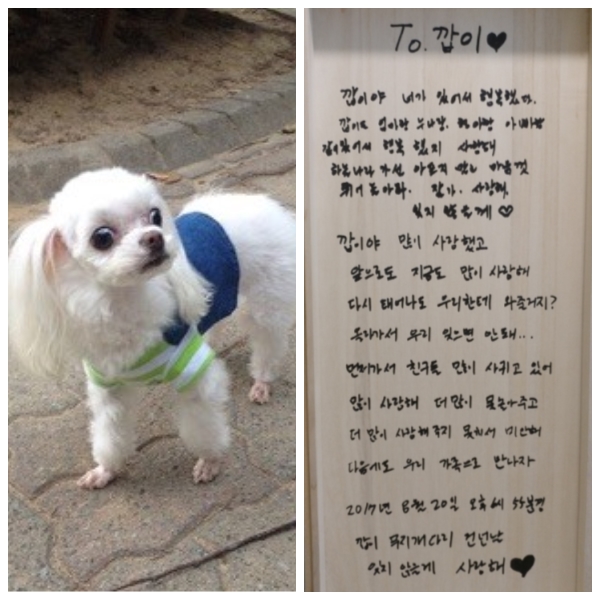 To. 깝이♥
깝이야 너가 있어서 행복했다.
깝이도 엄마랑 누나랑, 형아랑 아빠랑
같이 있어서 행복 했지 사랑해
하늘나라 가선 아프지 말고 마음껏
뛰어 놀아라. 잘가. 사랑해,
잊지 않을게 ♡
깝이야 많이 사랑했고
앞으로도 지금도 많이 사랑해
다시 태어나도 우리한테 와줄거지?
올라가서 우리 잊으면 안돼...
먼저가서 친구들 많이 사귀고 있어
많이 사랑해 더 많이 못놀아주고
더 많이 사랑해주지 못해서 미안해
다음에도 우리 가족으로 만나자
2017년 8월 20일 오후 세시 분경
깝이 무지개다리 건넌날
잊지 않을게 사랑해 ♥